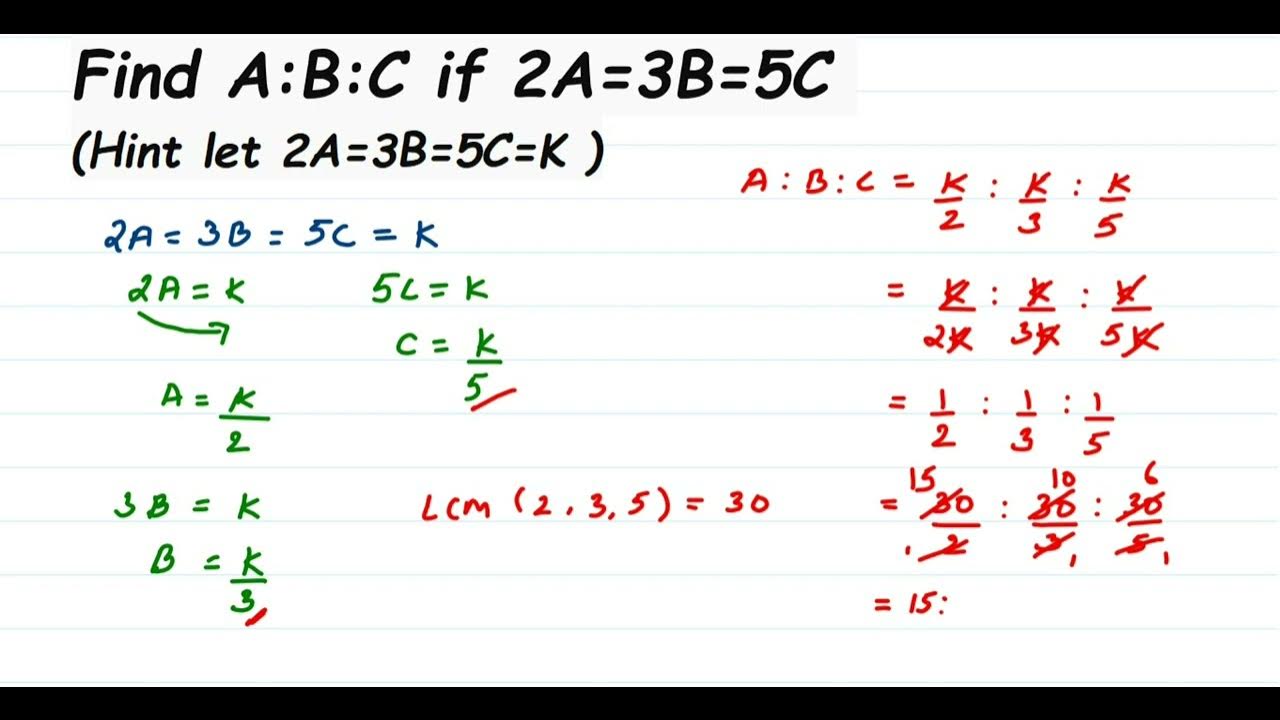 Find A:B:C if 2A=3B=5C
(Hint let 2A=3B=5C=K )
2A = 3B = 5C = K
2A = K
A = K/2
3B = K
B = K/3
5C = K
C = K/5
LCM (2, 3, 5) = 30
A : B : C = K/2 : K/3 : K/5
= K/2K : K/3K : K/5K
= 1/2 : 1/3 : 1/5
15 10 6
= 30/2 : 30/3 : 30/5
1 1 1
= 15: